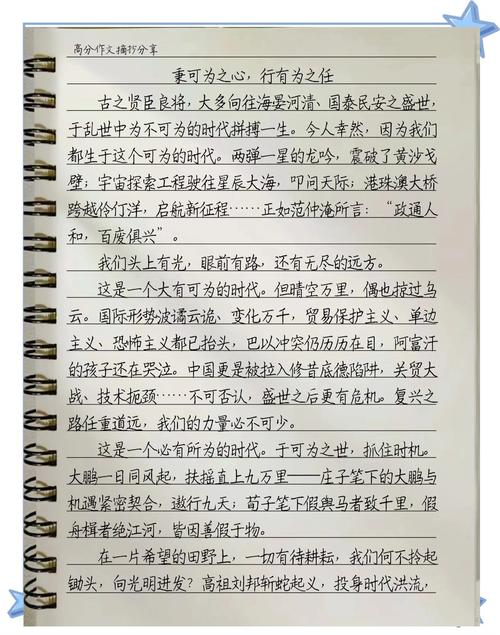 高分作文摘抄分享
秉可为之心，行有为之任
古之贤臣良将，大多向往海晏河清、国泰民安之盛世，
于乱世中为不可为的时代拼搏一生。今人幸然，因为我们
都生于这个可为的时代。两弹一星的龙吟，震破了黄沙戈
壁；宇宙探索工程驶往星辰大海，叩问天际；港珠澳大桥
跨越伶仃洋，启航新征程……正如范仲淹所言：“政通人
和，百废俱兴”。
我们头上有光，眼前有路，还有无尽的远方。
这是一个大有可为的时代。但晴空万里，偶也掠过乌
云。国际形势波谲云诡、变化万千，贸易保护主义、单边
主义、恐怖主义都已抬头，巴以冲突仍历历在目，阿富汗
的孩子还在哭泣。中国更是被拉入修昔底德陷阱，关贸大
战、技术扼颈……不可否认，盛世之后更有危机。复兴之
路任重道远，我们的力量必不可少。
这是一个必有所为的时代。于可为之世，抓住时机。
大鹏一日同风起，扶摇直上九万里——庄子笔下的大鹏与
机遇紧密契合，遨行九天；荀子笔下假舆马者致千里，假
舟楫者绝江河，皆因善假于物。
在一片希望的田野上，一切有待耕耘，我们何不拎起
锄头，向光明进发？高祖刘邦斩蛇起义，投身时代洪流，